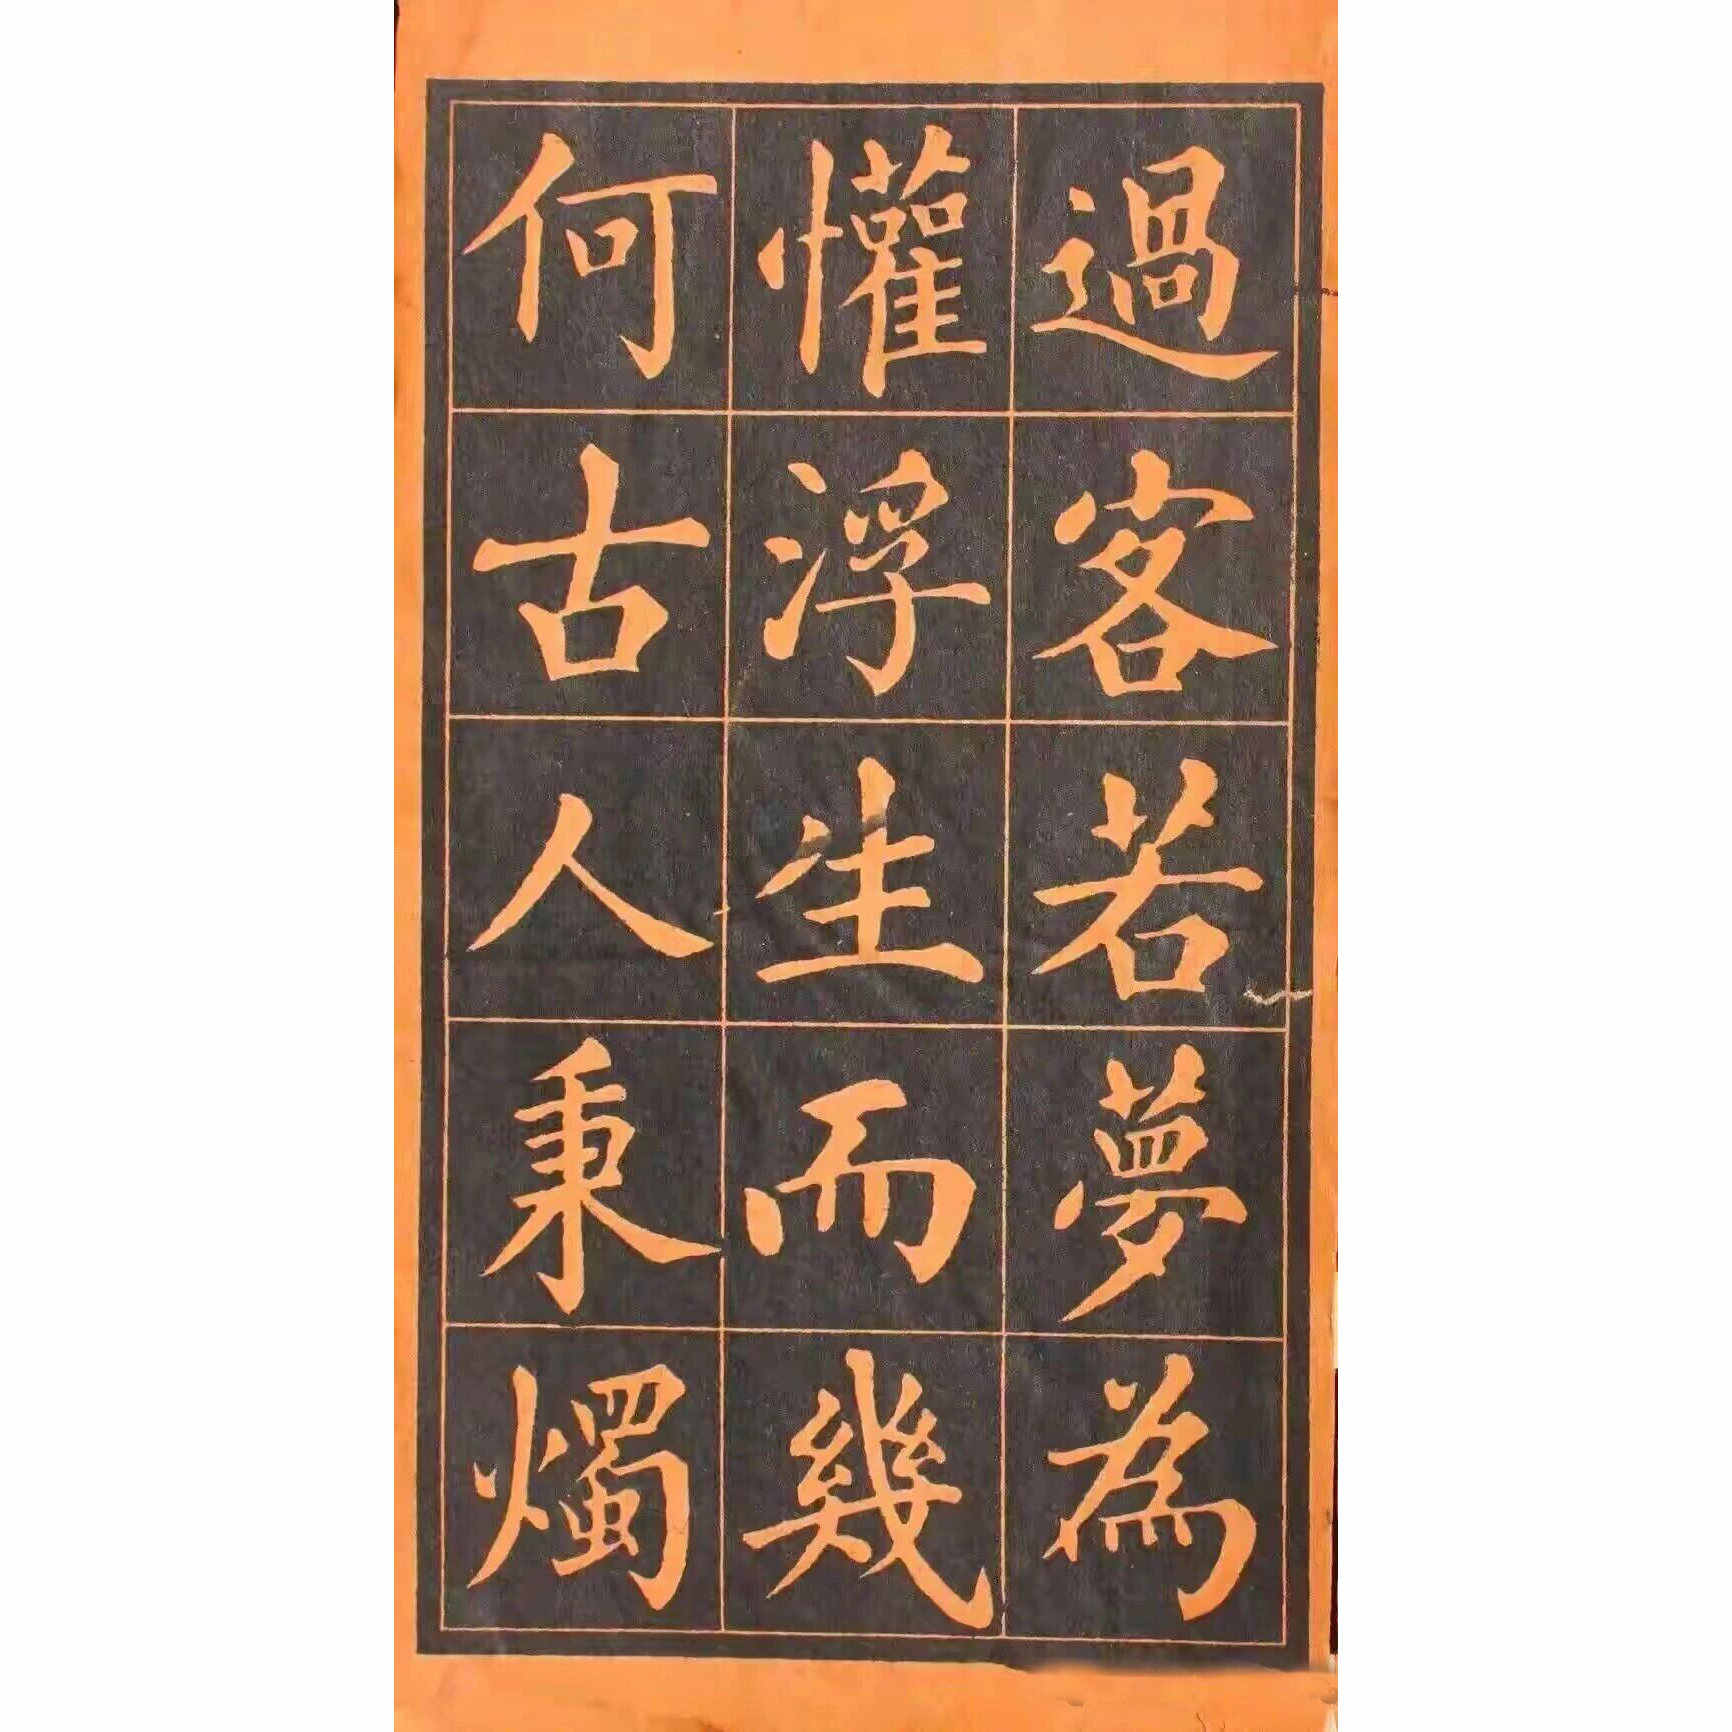 過客若夢為
懽浮生而幾
何古人秉燭